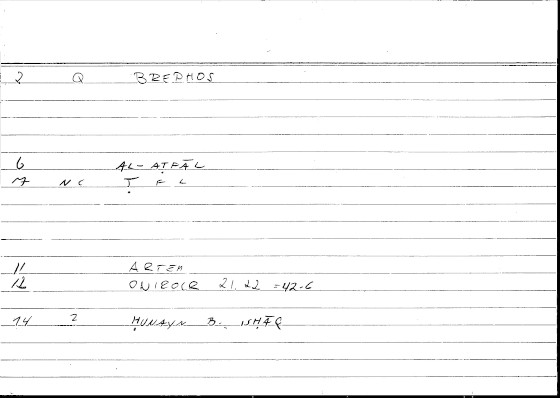 2 Q BREPHOS
6 AL-AṬFĀL
7 NC Ṭ F L
11 ARTEM
12 ONIROCR 21.22 =42-6
14 2 ḤUNAYN B. ISḤĀQ